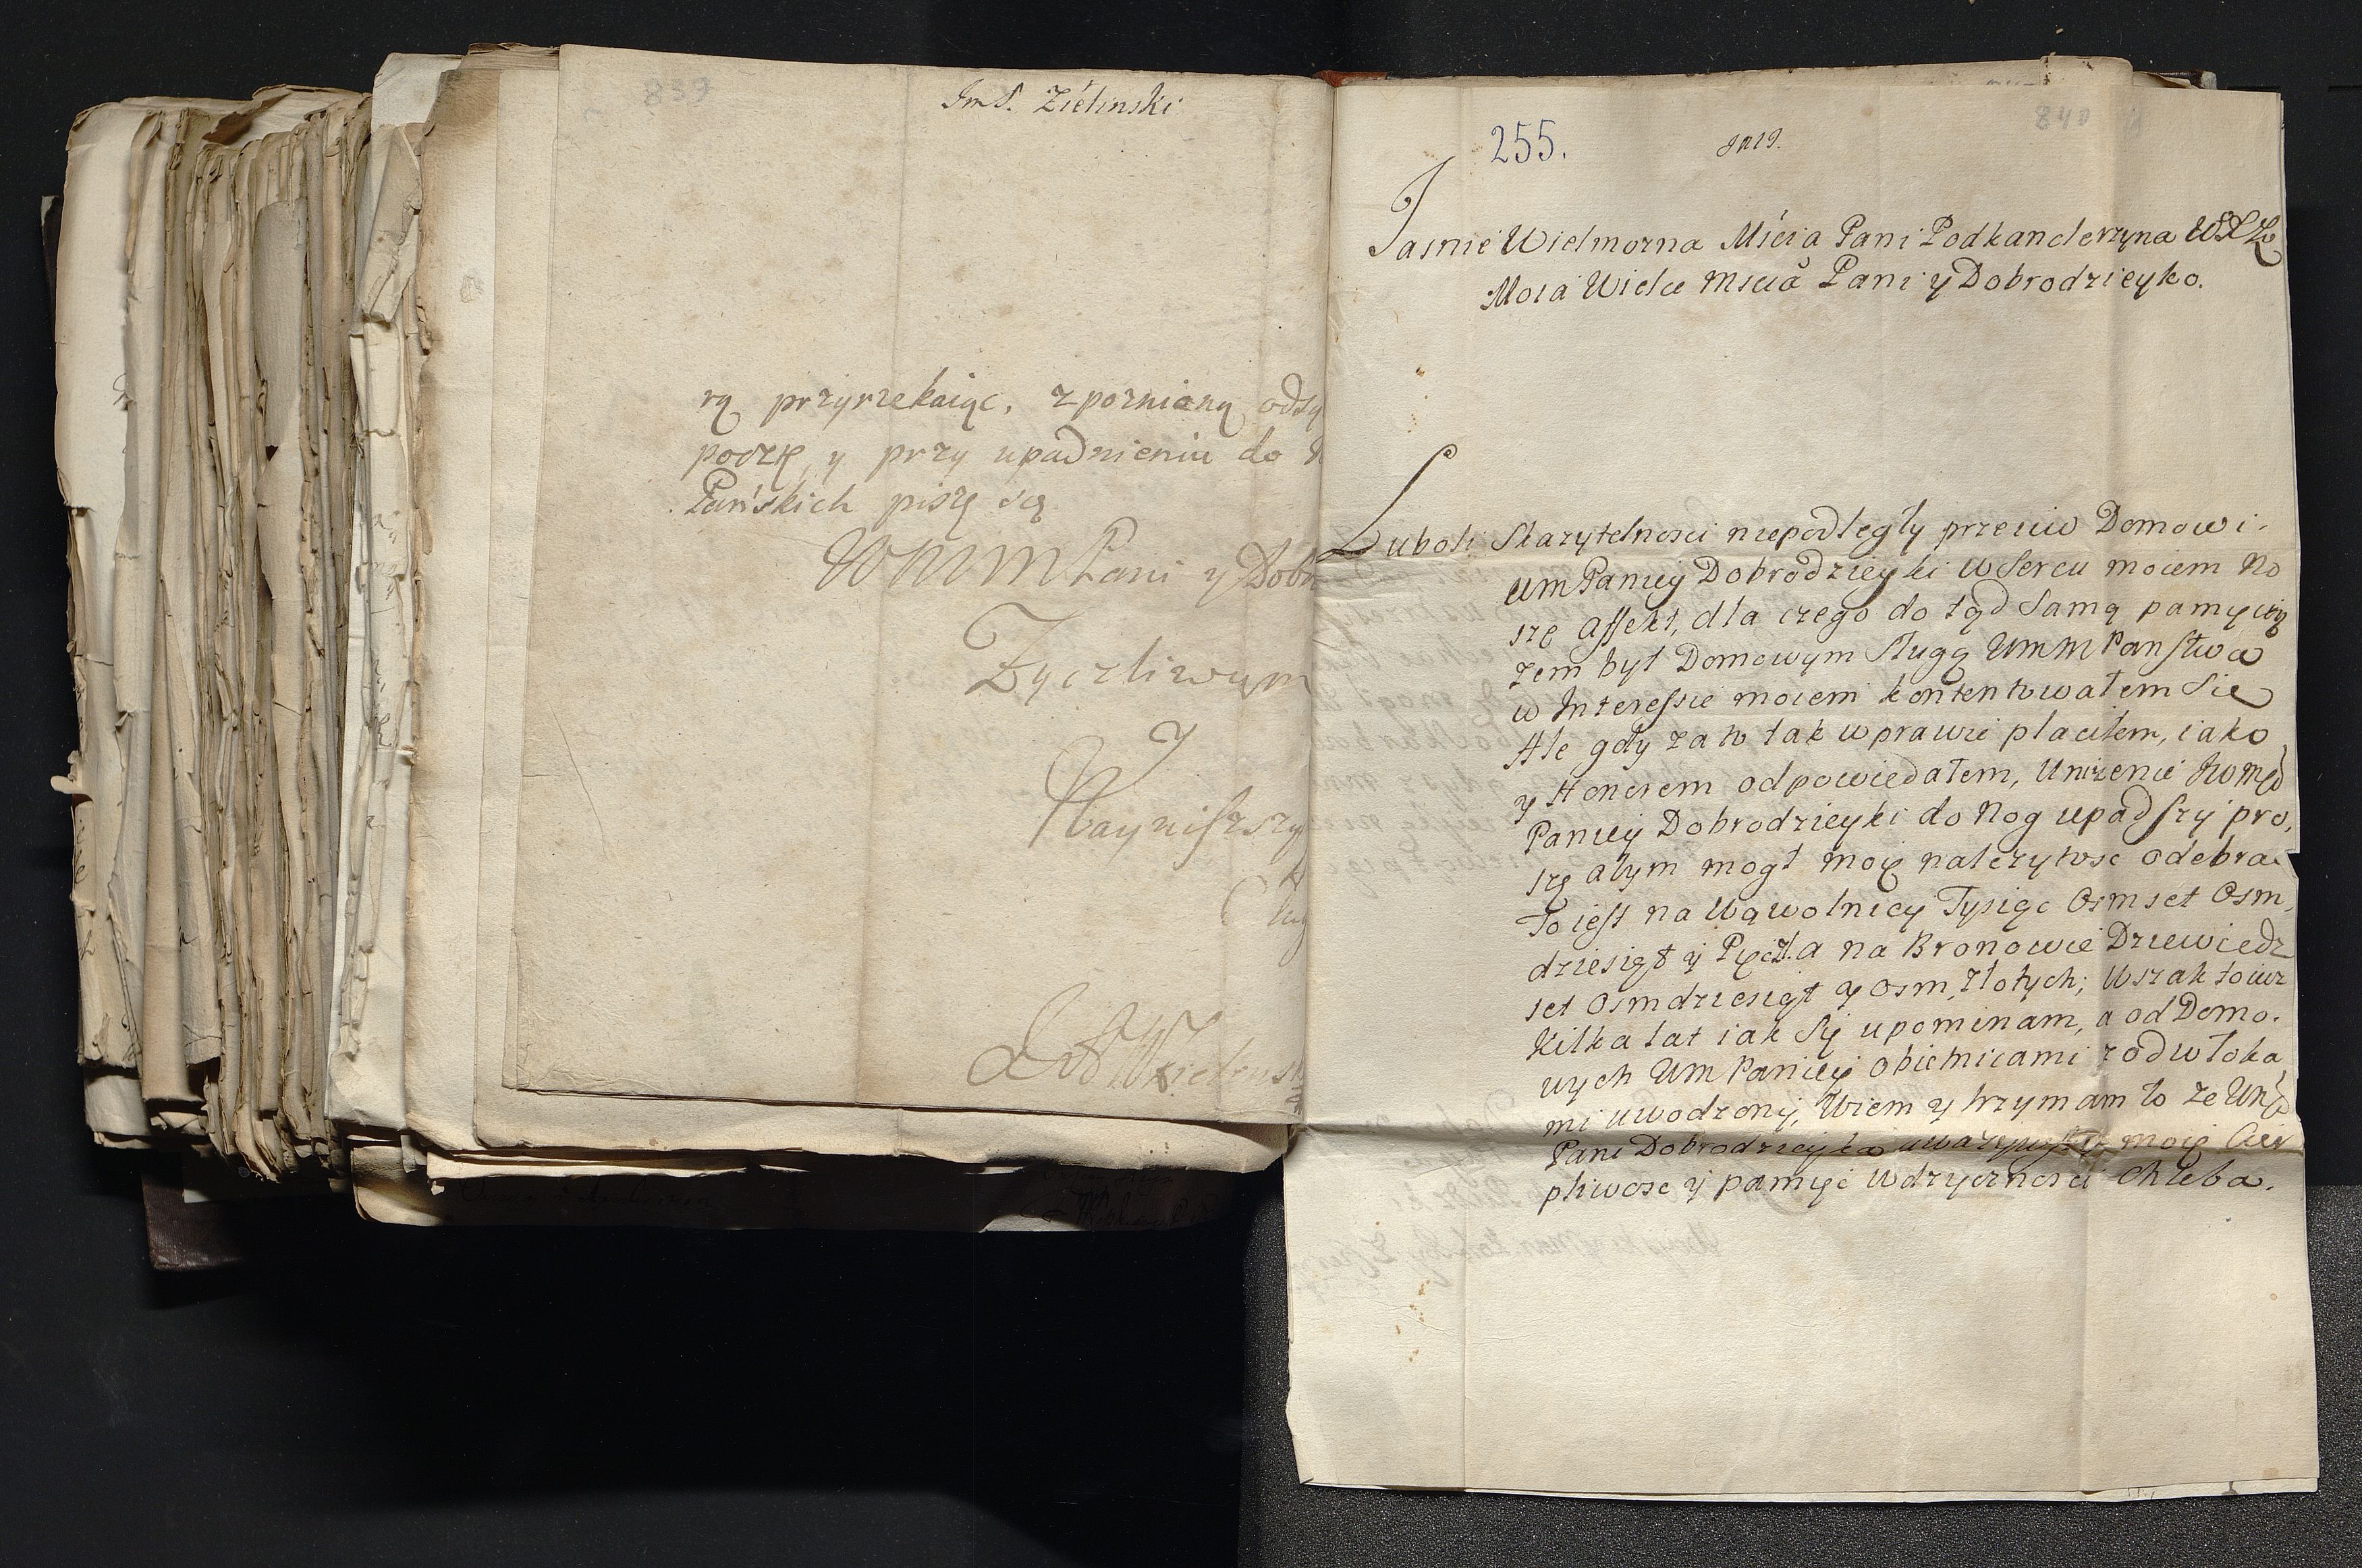 839
Jm P. Zielinski
rą przyrzekaiąc, z poznianą odsy
poczę, y przy upadnieniu do
Pańskich piszę się
WMM Pani y Dobr
Zyczliwym
Y
Nayniszszy
Zielinsk
840
255.
Jasnie Wielmozna Mścia Pani Podkanclerzyna WXL
Moia Wielce Mscia Pani y Dobrodzieyko.
Luboli Skazytelnosci niepodległy przeciw Domowi
UmPaniey Dobrodzieyki w Sercu moiem no
szę affekt, dla czego do tąd Samą pamięcią
zem był Domowym Sługą UmmPanstwa
w Interessie moiem kontentowałem Się
Ale gdy za to tak w prawie płaciłem, iako
y Honorem odpowiedałem, Unizenie
Paniey Dobrodzieyki do Nog upadszy pro,
szę abym mogł moię nalezytosc odebrac
To iest na Wąwolnicy Tysiąc Osmset Osm,
dziesiąt y Pięć zł. a na Bronowie Dziewiedz
set Osmdziesiąt y osm, złotych; Wszak to iuz
Kilka lat iak Się upominam, a od Domo.
wych UmPaniey obietnicami z odwłoka
mi uwodzony, Wiem y trzymam to ze
Pani Dobrodzieyka uwazywszy moię Cier
pliwosc y pamięc Wdzięcznosci Chleba.